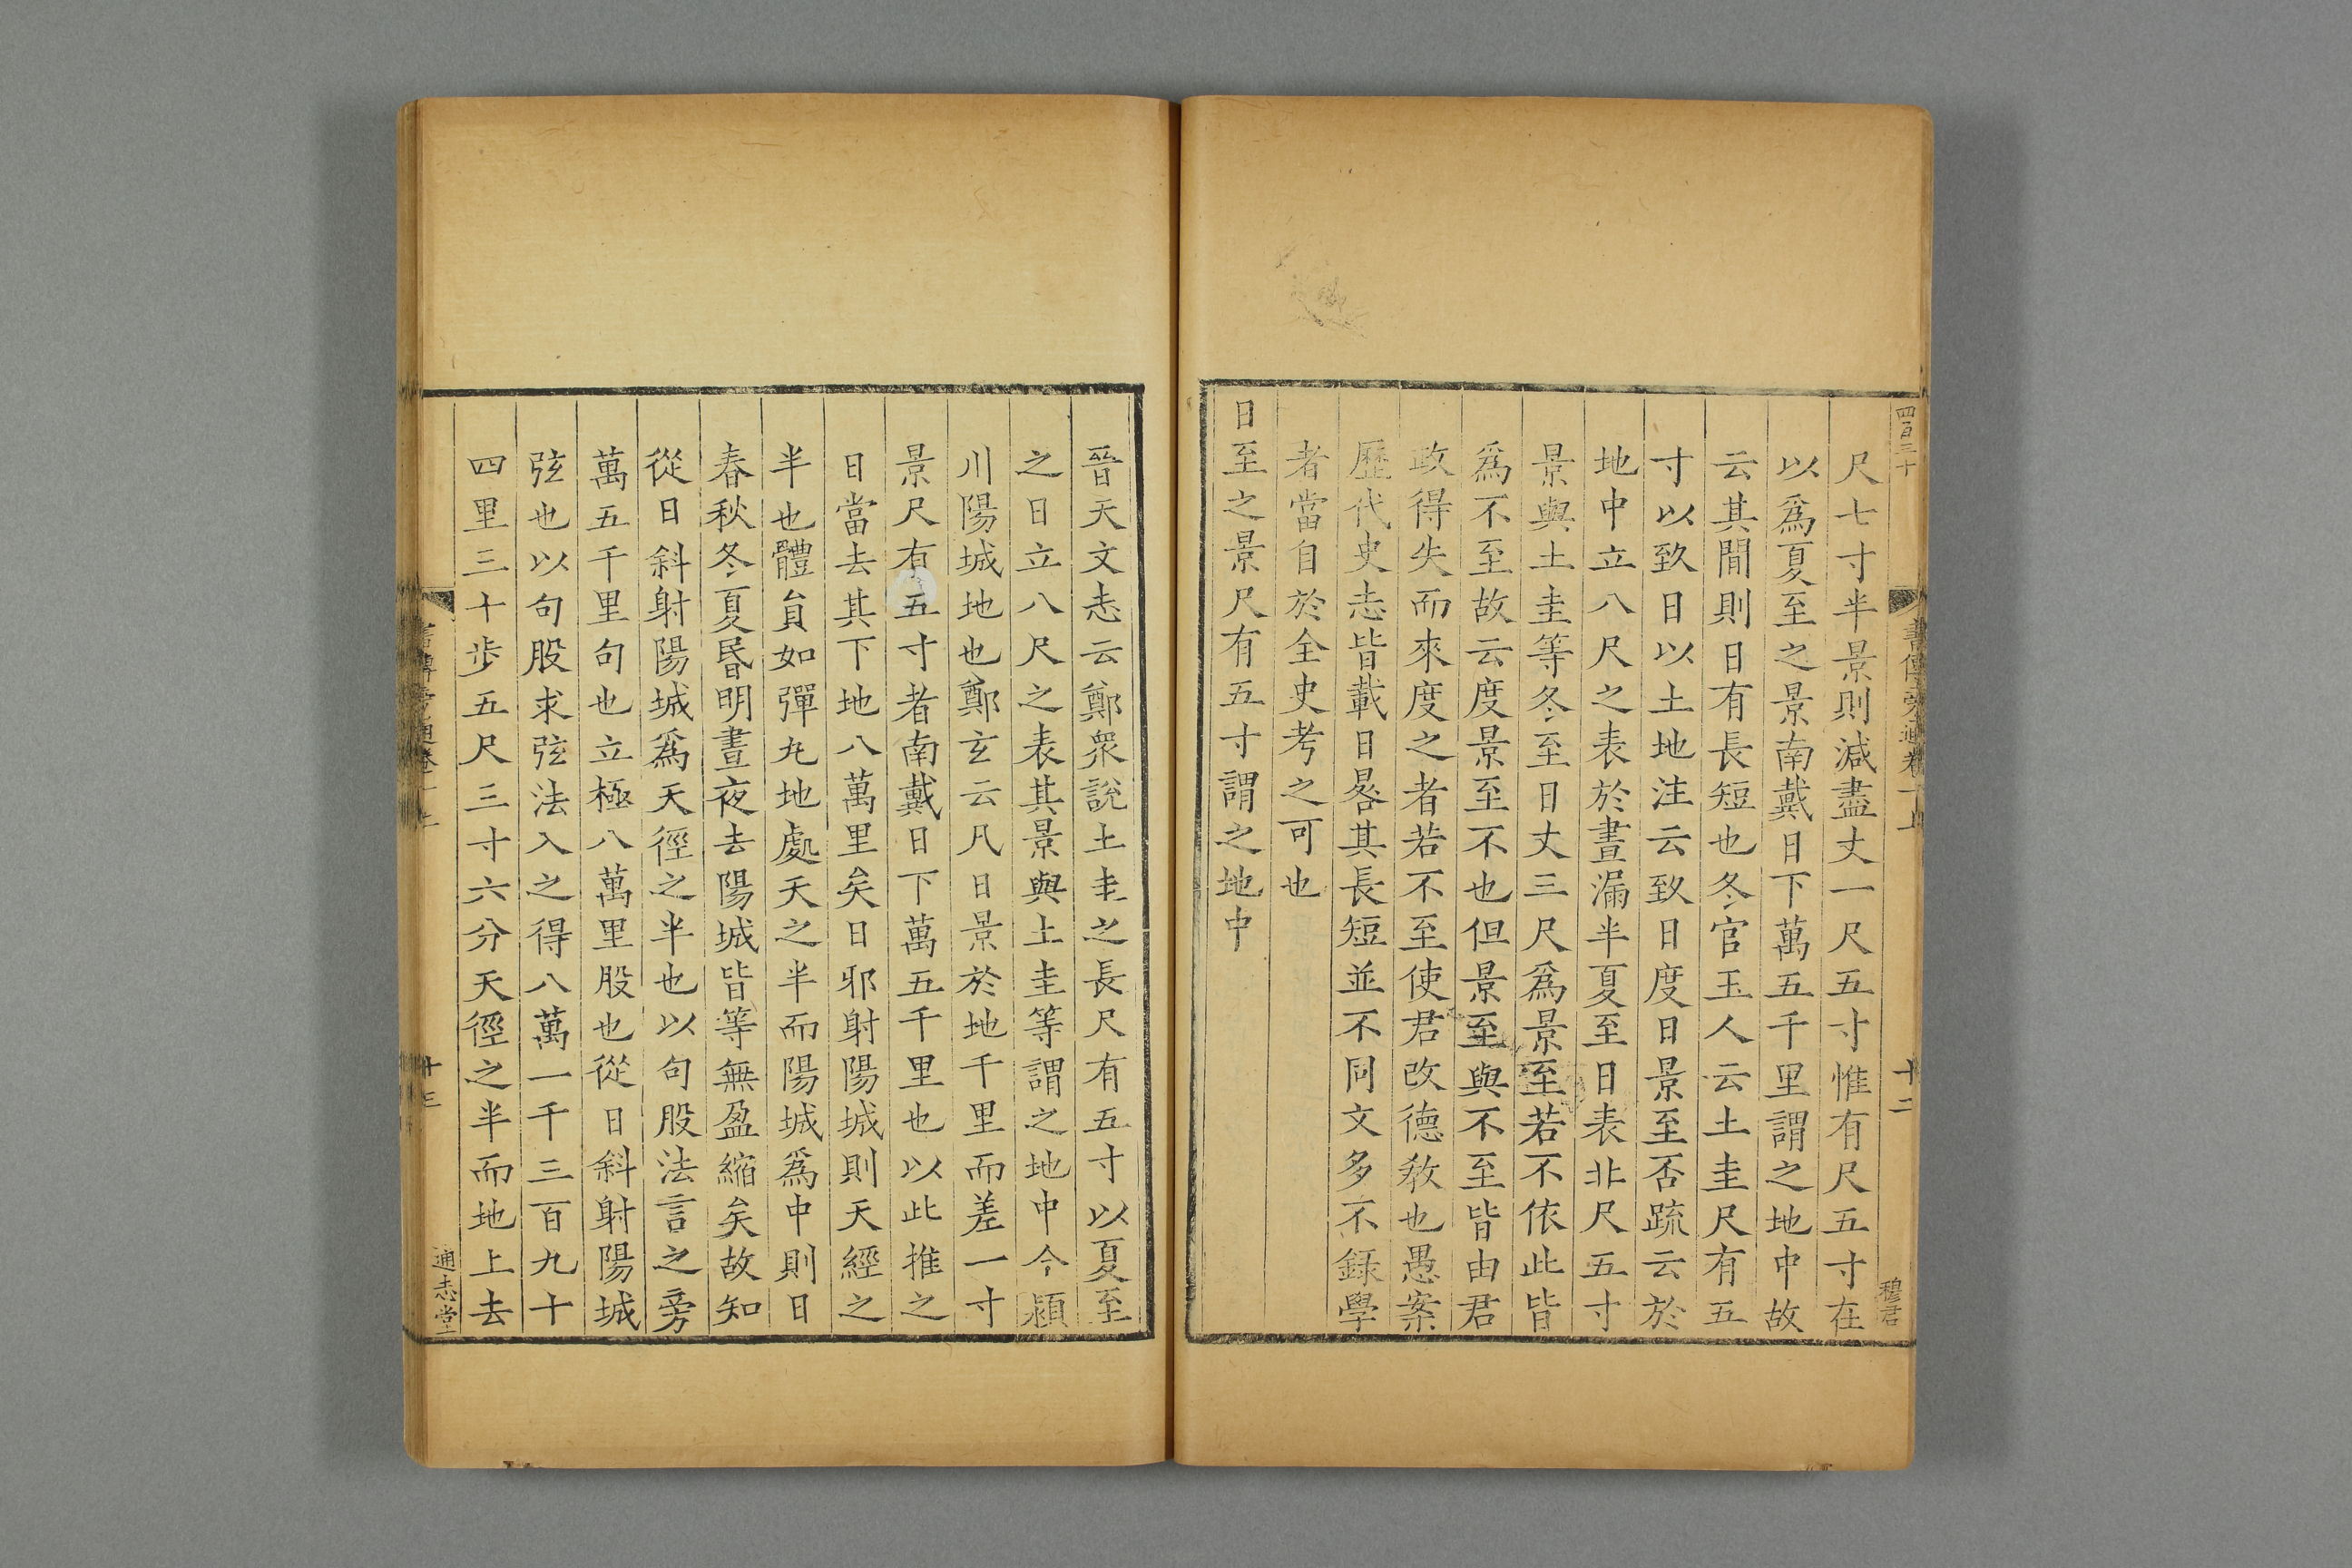 四百三十
書傳旁通卷一上
十二
穆君
尺七寸半景則減盡丈一尺五寸惟有尺五寸在
以爲夏至之景南戴日下萬五千里謂之地中故
云其閒則日有長短也冬官玉人云土圭尺有五
寸以致日以土地注云致日度日景至否疏云於
地中立八尺之表於晝漏半夏至日表北尺五寸
景與土圭等冬至日丈三尺爲景至若不依此皆
爲不至故云度景至不也但景至與不至皆由君
政得失而來度之者若不至使君改德教也愚案
歷代史志皆載日晷其長短並不同文多不錄學
者當自於全史考之可也
日至之景尺有五寸謂之地中
晉天文志云鄭衆說土圭之長尺有五寸以夏至
之日立八尺之表其景與土圭等謂之地中今潁
川陽城地也鄭玄云凡日景於地千里而差一寸
景尺有五寸者南戴日下萬五千里也以此推之
日當去其下地八萬里矣日邪射陽城則天經之
半也體員如彈丸地處天之半而陽城爲中則日
春秋冬夏昏明晝夜去陽城皆等無盈縮矣故知
從日斜射陽城爲天徑之半也以句股法言之旁
萬五千里句也立極八萬里股也從日斜射陽城
弦也以句股求弦法入之得八萬一千三百九十
四里三十步五尺三寸六分天徑之半而地上去
書傳旁通卷一上
十三
通志堂